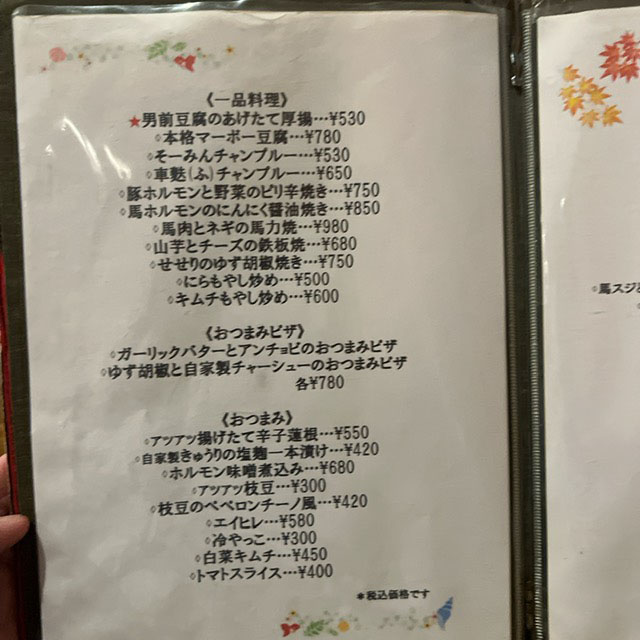 《一品料理》
★男前豆腐のあげたて厚揚…¥530
◇本格マーボー豆腐…¥780
◇そーみんチャンプルー…¥530
◇車麩(ふ)チャンプルー…¥650
◇豚ホルモンと野菜のピリ辛焼き…¥750
◇馬ホルモンのにんにく醤油焼き…¥850
◇馬肉とネギの馬力焼…¥980
◇山芋とチーズの鉄板焼…¥680
◇せせりのゆず胡椒焼き…¥750
◇にらもやし炒め…¥500
◇キムチもやし炒め…¥600
《おつまみピザ》
◇ガーリックバターとアンチョビのおつまみピザ
◇ゆず胡椒と自家製チャーシューのおつまみピザ
各¥780
《おつまみ》
◇アツアツ揚げたて辛子蓮根…¥550
◇自家製きゅうりの塩麹一本漬け…¥420
◇ホルモン味噌煮込み…¥680
◇アツアツ枝豆…¥300
◇枝豆のペペロンチーノ風…¥420
◇エイヒレ…¥580
◇冷やっこ…¥300
◇白菜キムチ…¥450
◇トマトスライス…¥400
*税込価格です
◇馬スジ